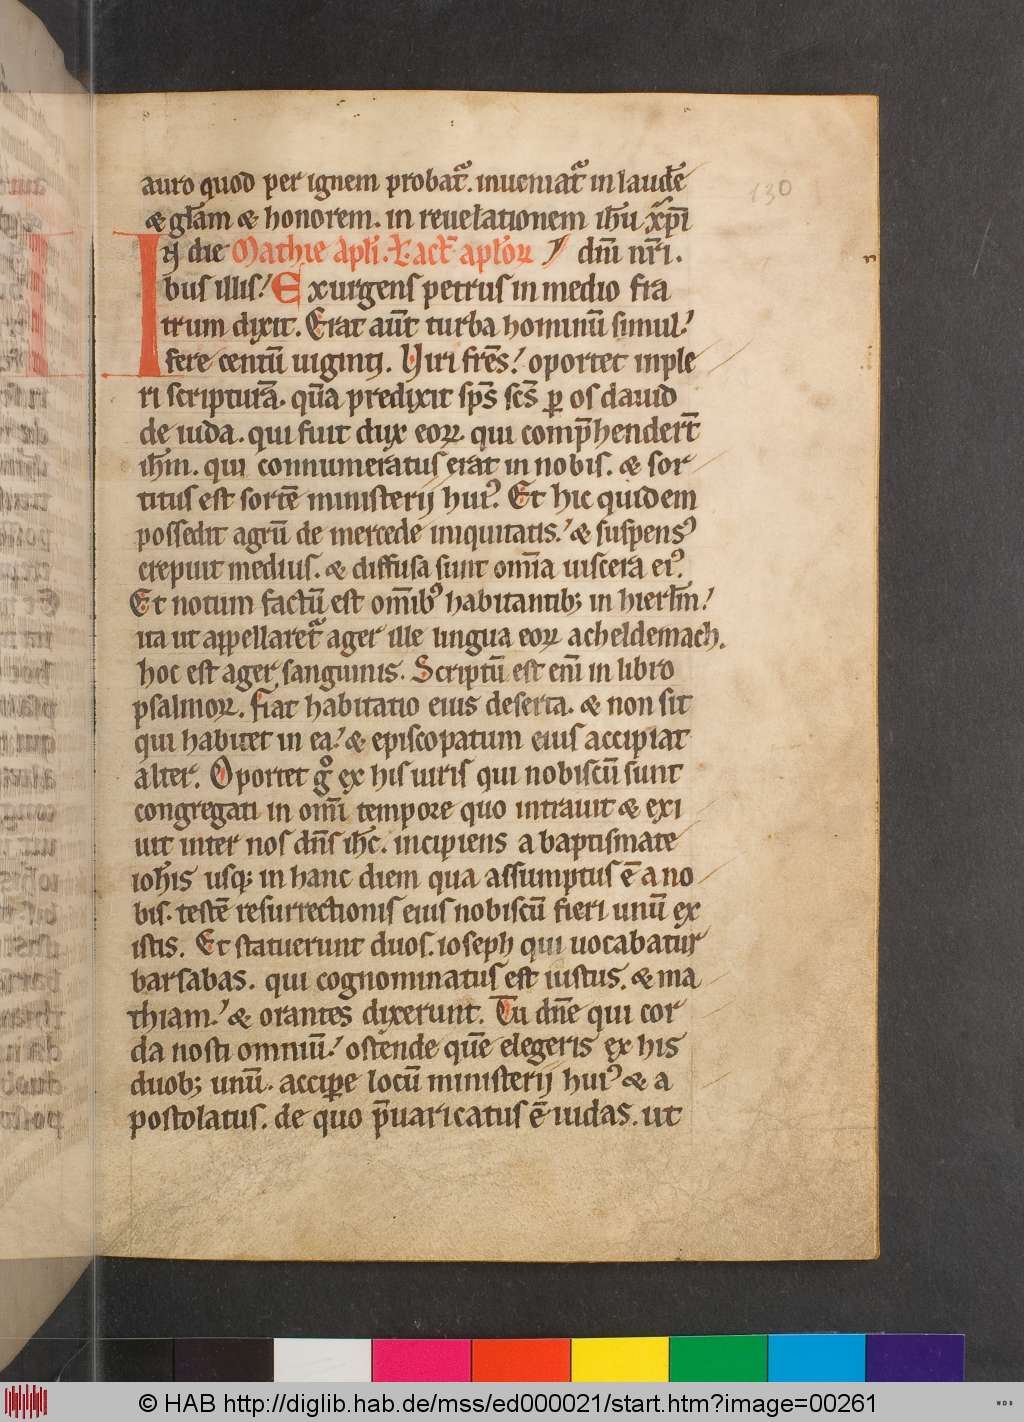 auro quod per ignem probat᷑. inueniat᷑ in laudē
& gl̄am & honorem. in reuelationem ih̄u xp̄i
130
IN die Mathie apl̄i. L̄. act᷑ apl̄oꝝ dn̄i nr̄i.
bus illis: Exurgens petrus in medio fra
trum dixit. Erat aūt turba hominū simul:
fere centū uiginti. Viri fr̄es: oportet imple
ri scripturā. quā predixit sp̄s sc̄s ꝑ os dauid
de iuda. qui fuit dux eoꝝ. qui comp̄hendert̄
ih̄m. qui connumeratus erat in nobis. & sor
titus est sortē ministerij huiꝰ. Et hic quidem
possedit agrū de mercede iniquitatis: & suspensꝰ
crepuit medius. & diffusa sunt om̄ia uiscera eiꝰ.
Et notum factū est om̄ibꝰ habitantib; in hierl̄m:
ita ut appellaret᷑ ager ille lingua eoꝝ acheldemach.
hoc est ager sanguinis. Scriptū est eni᷑ in libro
psalmoꝝ. fiat habitatio eius deserta. & non sit
qui habitet in ea: & episcopatum eius accipiat
alter. Oportet gͦ ex his uiris qui nobiscū sunt
congregati in om̄i tempore quo intrauit & exi
uit inter nos dn̄s ih̄c. incipiens a baptismate
ioh̄is usq; in hanc diem qua assumptus ē a no
bis. testē resurrectionis eius nobiscū fieri unū ex
istis. Et statuerunt duos. ioseph qui uocabatur
barsabas. qui cognominatus est iustus. & ma
thiam: & orantes dixerunt. Tu dn̄e qui cor
da nosti omniū: ostende quē elegeris ex his
duob; unū. accipe locū ministerij huiꝰ & a
postolatus. de quo p̄uaricatus ē iudas. ut
© HAB http://diglib.hab.de/mss/ed000021/start.htm?image=00261